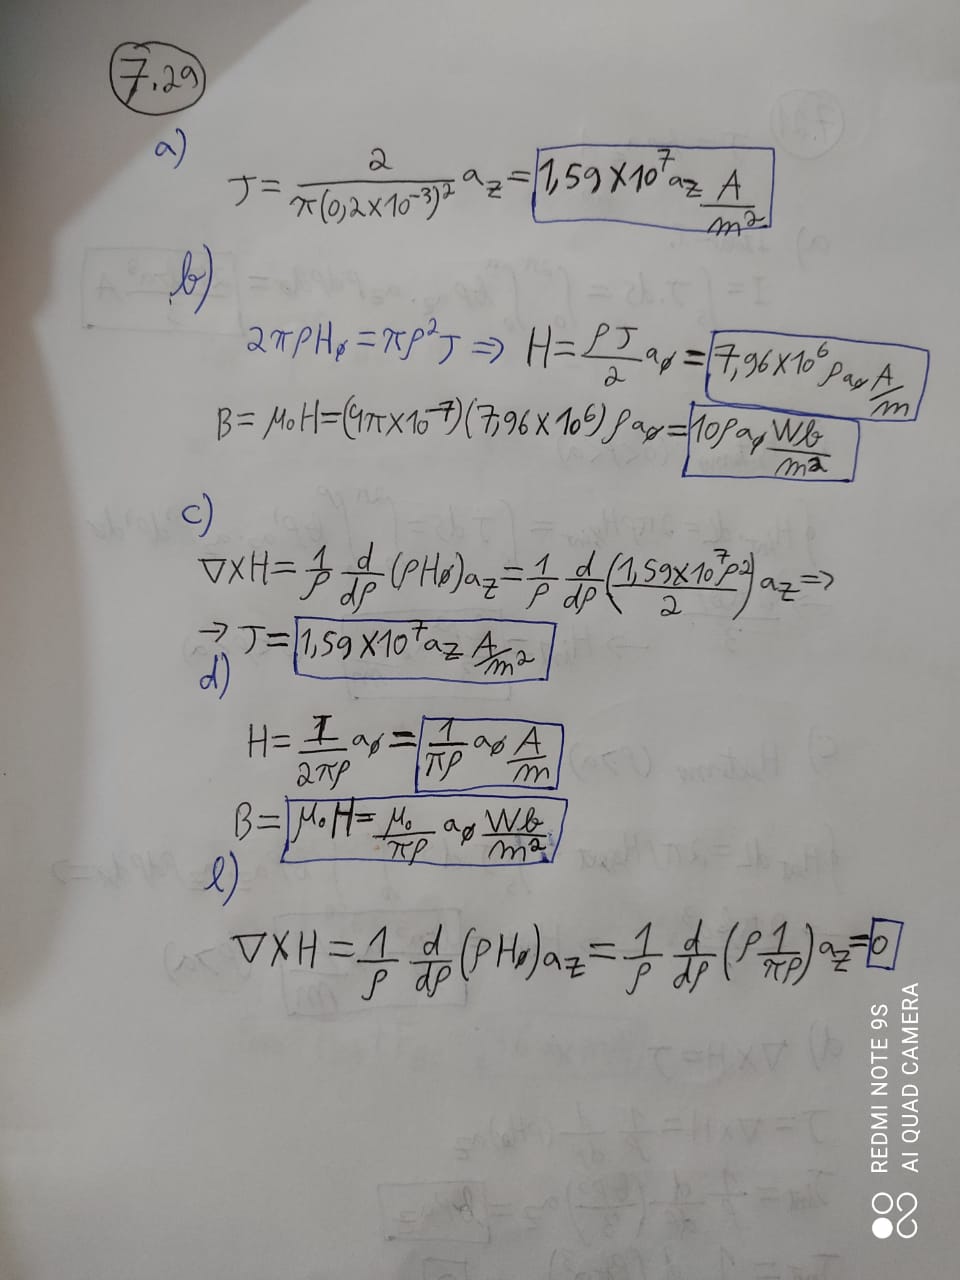 7.29
a)
J = 2/(π(0,2×10⁻³)²) a_z = 1,59×10⁷ a_z A/m²
b)
2πρH_ø = πρ²J ⇒ H = ρJ/2 a_ø = 7,96×10⁶ ρ a_ø A/m
B = μ₀H = (4π×10⁻⁷)(7,96×10⁶)ρ a_ø = 10ρ a_ø Wb/m²
c)
∇×H = 1/ρ d/dρ (ρH_ø) a_z = 1/ρ d/dρ (1,59×10⁷ρ²/2) a_z ⇒
→ J = 1,59×10⁷ a_z A/m²
d)
H = I/2πρ a_ø = 1/πρ a_ø A/m
B = μ₀H = μ₀/πρ a_ø Wb/m²
e)
∇×H = 1/ρ d/dρ (ρH_ø) a_z = 1/ρ d/dρ (ρ 1/πρ) a_z = 0
REDMI NOTE 9S
AI QUAD CAMERA